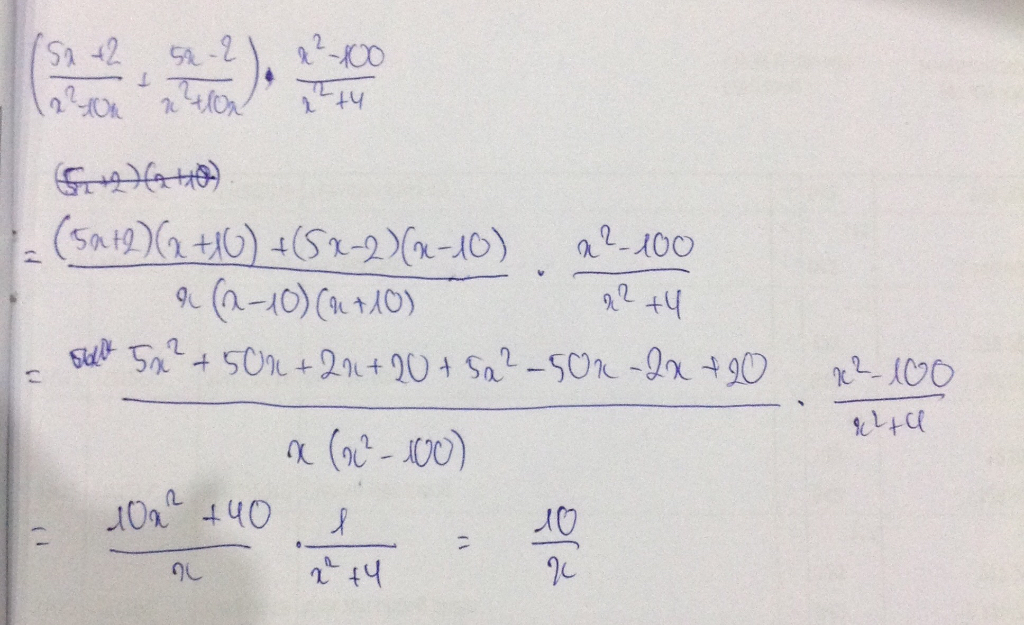 (5x+2/x²-10x + 5x-2/x²+10x) · x²-100/x²+4
(5x+2)(x+10)
= (5x+2)(x+10)+(5x-2)(x-10)/x(x-10)(x+10) · x²-100/x²+4
= 5x²+50x+2x+20+5x²-50x-2x+20/x(x²-100) · x²-100/x²+4
= 10x²+40/x · 1/x²+4 = 10/x